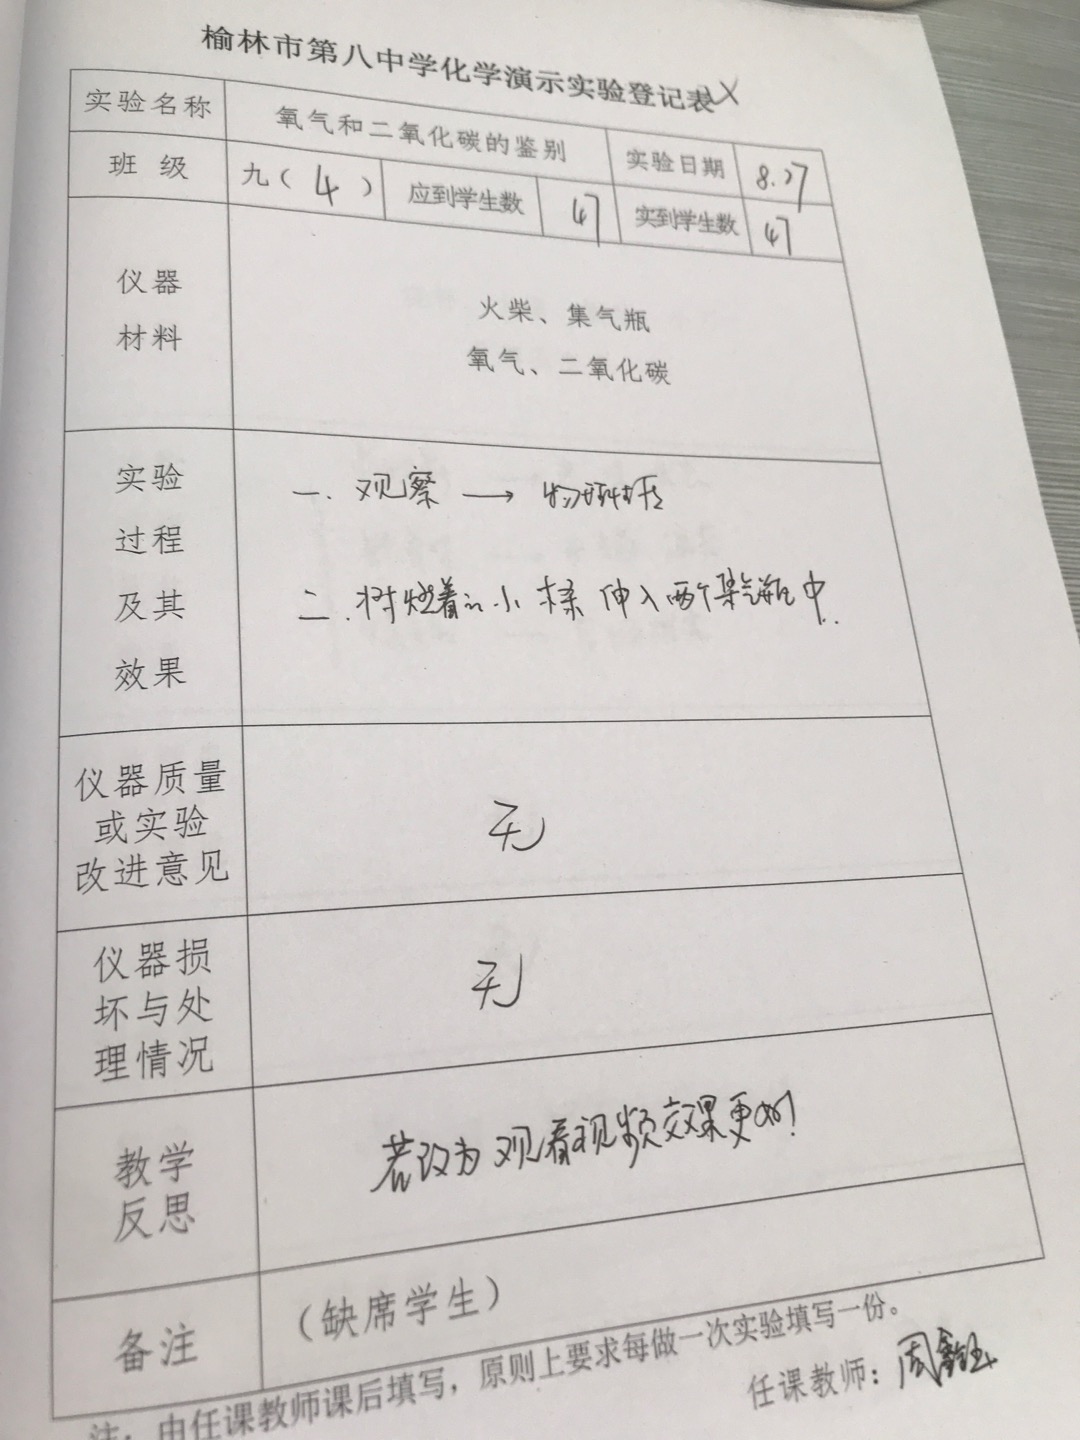 榆林市第八中学化学演示实验登记表
实验名称 氧气和二氧化碳的鉴别 实验日期 8.27
班 级 九（4） 应到学生数 47 实到学生数 47
仪器
材料
火柴、集气瓶
氧气、二氧化碳
实验
过程
及其
效果
一. 观察 → 物理性质
二. 将燃着的小木条伸入两个集气瓶中.
仪器质量
或实验
改进意见
无
仪器损
坏与处
理情况
无
教学
反思
若改为观看视频效果更好!
备注
（缺席学生）
注：由任课教师课后填写，原则上要求每做一次实验填写一份。
任课教师：周